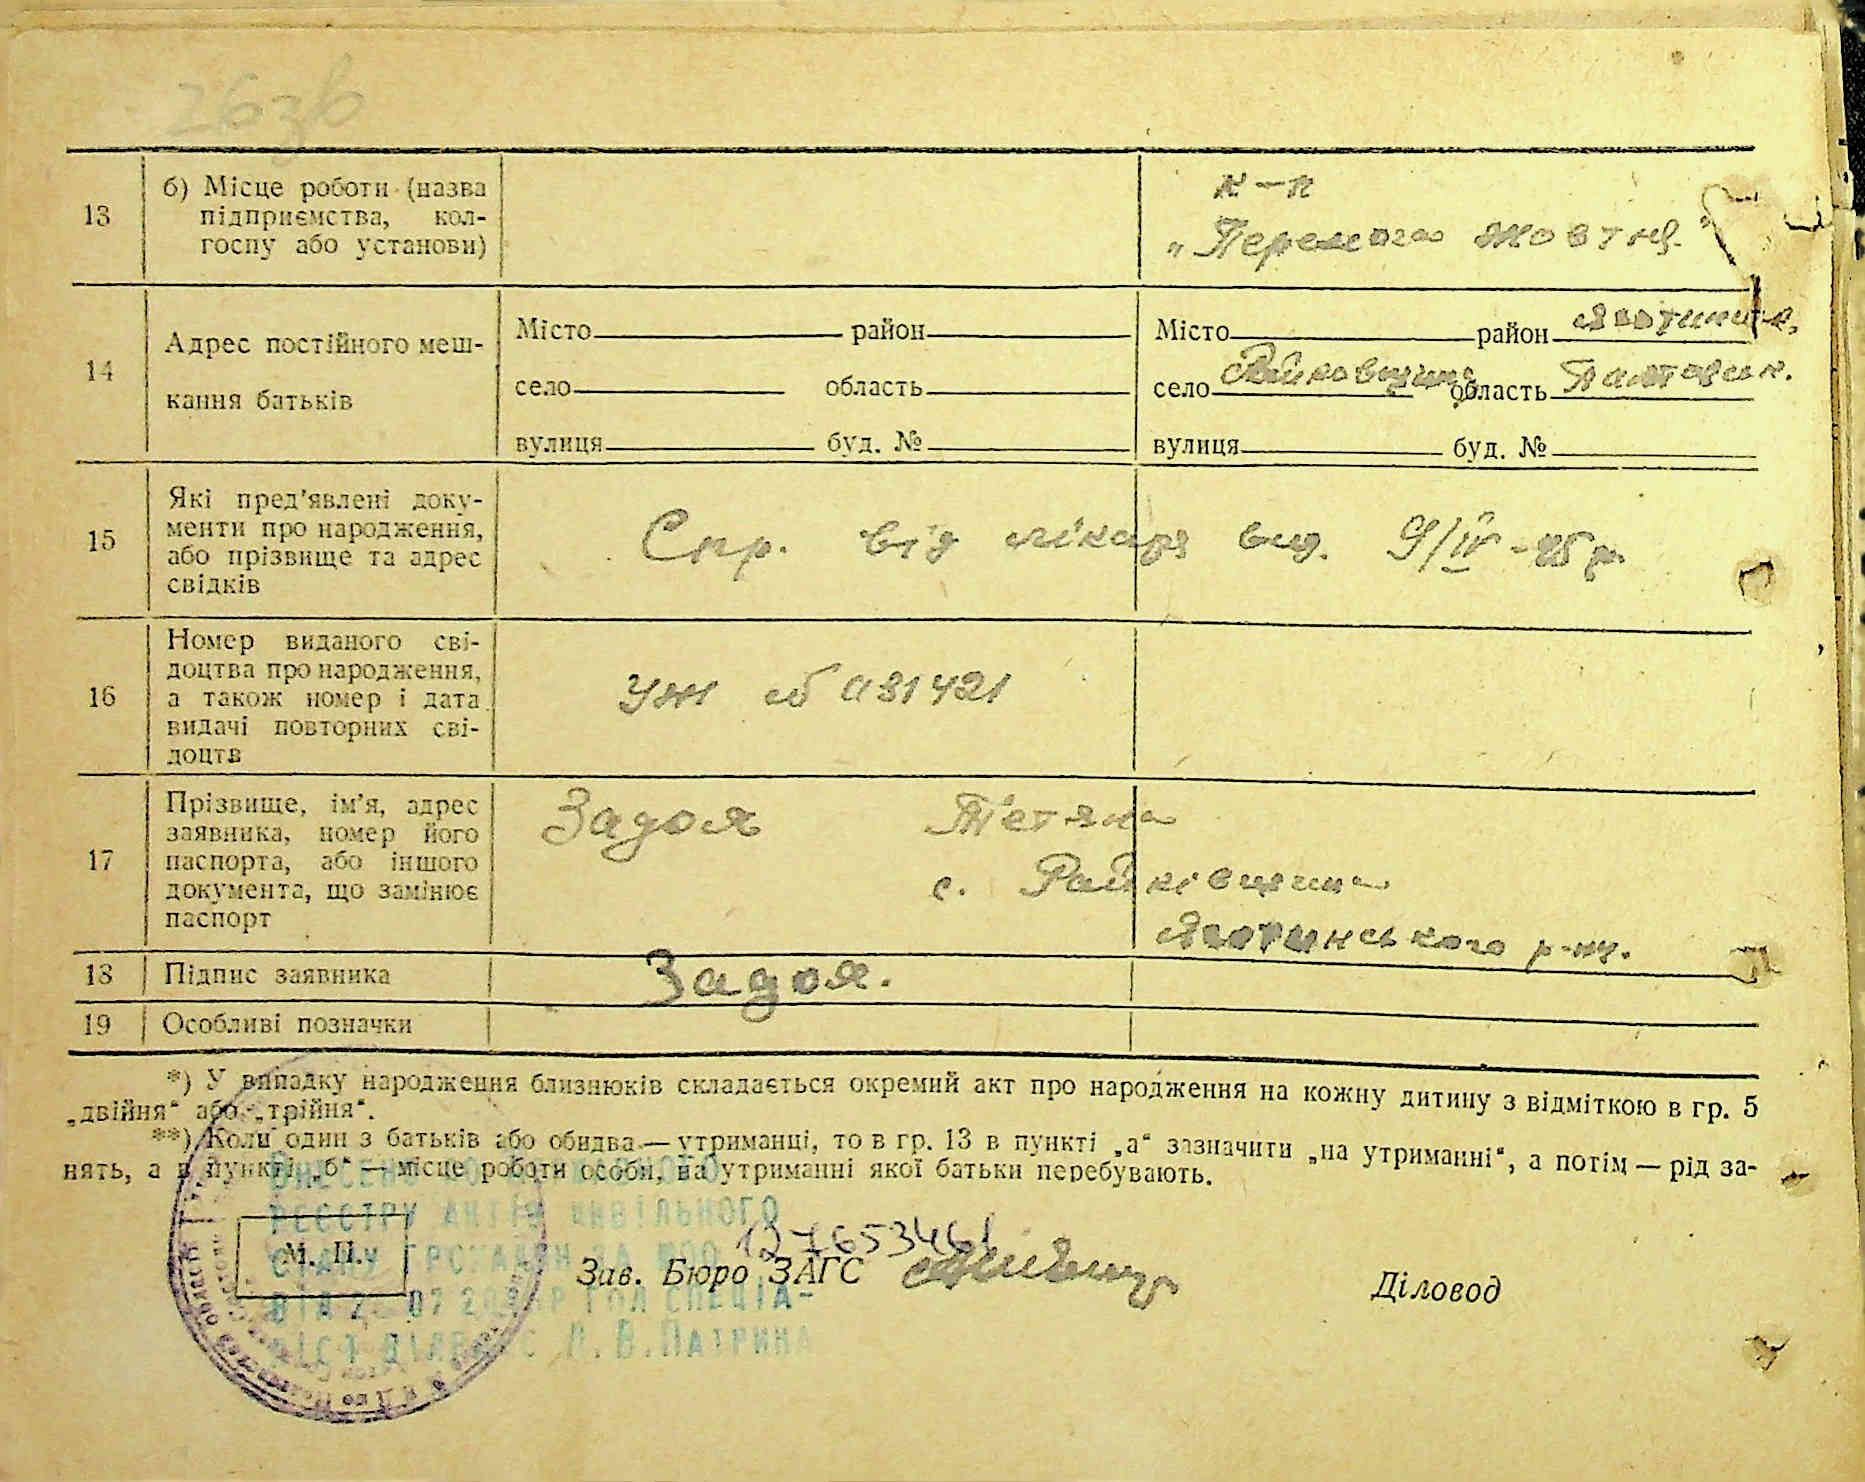 26зв
13 б) Місце роботи (назва
підприємства, кол-
госпу або установи)
к-п
„Перемога жовтня"
14 Адрес постійного меш-
кання батьків
Місто район Місто район Яготинськ.
село область село Райковщина область Полтавськ.
вулиця буд. № вулиця буд. №
15 Які пред'явлені доку-
менти про народження,
або прізвище та адрес
свідків
Спр. від лікаря вид. 9/IV-45 р.
16 Номер виданого сві-
доцтва про народження,
а також номер і дата
видачі повторних сві-
доцтв
УЖ № 031421
17 Прізвище, ім'я, адрес
заявника, номер його
паспорта, або іншого
документа, що замінює
паспорт
Задоя Тетяна
с. Райківщина
Яготинського р-ну.
18 Підпис заявника Задоя.
19 Особливі позначки
*) У випадку народження близнюків складається окремий акт про народження на кожну дитину з відміткою в гр. 5
„двійня" або „трійня".
**) Коли один з батьків або обидва — утриманці, то в гр. 13 в пункті „а" зазначити „на утриманні", а потім — рід за-
нять, а в пункті „б" — місце роботи особи, на утриманні якої батьки перебувають.
РЕЄСТРУ АКТІВ ЦИВІЛЬНОГО
СТАНУ ГРОМАДЯН ЗА №00
127653461
М. П. Зав. Бюро ЗАГС Діловод
СПЕЦІА-
ЛІСТ ДІЛЯВ С Л.В.ПАТРИНА